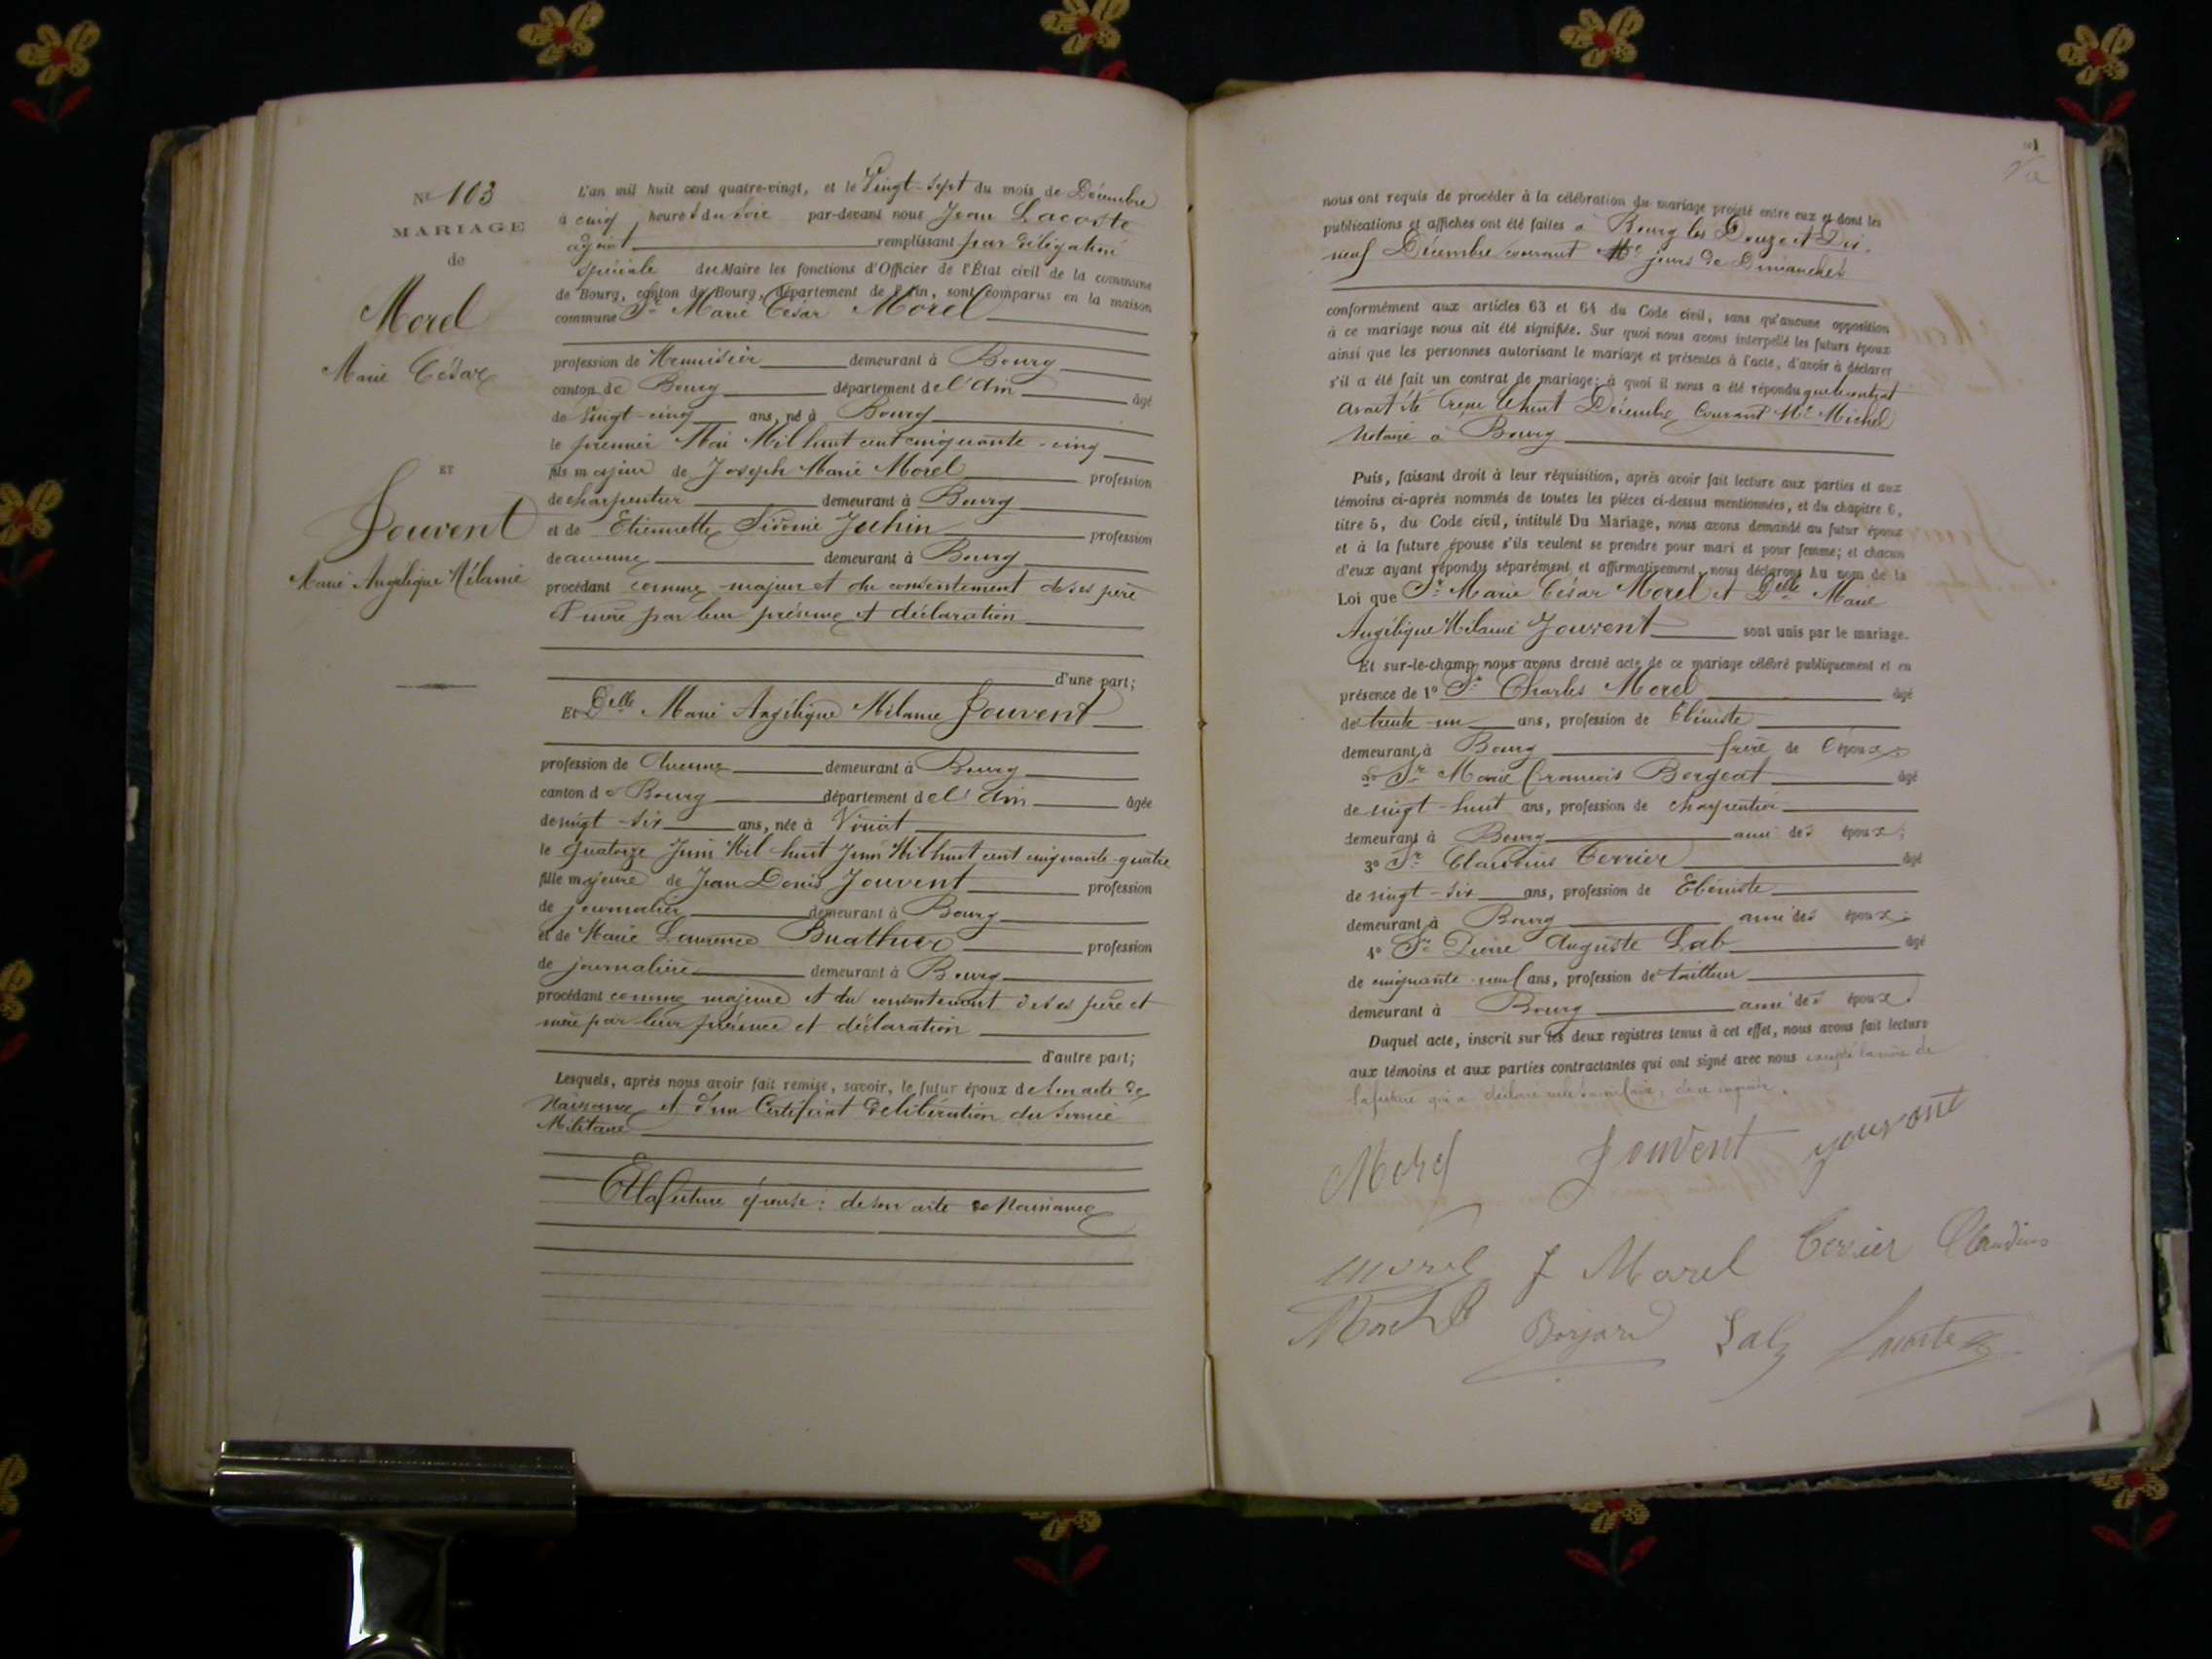 N° 103
MARIAGE
de
Morel
Marie César
ET
Jouvent
Marie Angélique Mélanie
L'an mil huit cent quatre-vingt, et le Vingt-Sept du mois de Décembre
à cinq heures du soir par-devant nous Jean Lacoste
adjoint remplissant par délégation
spéciale du Maire les fonctions d'Officier de l'État civil de la commune
de Bourg, canton de Bourg, département de l'Ain, sont comparus en la maison
commune Sr Marie César Morel
profession de Menuisier demeurant à Bourg
canton de Bourg département de l'Ain âgé
de vingt-cinq ans, né à Bourg
le premier Mai Mil huit cent cinquante-cinq
fils majeur de Joseph Marie Morel profession
de charpentier demeurant à Bourg
et de Etiennette Sidonie Juhin profession
de aucune demeurant à Bourg
procédant comme majeur et du consentement de ses père
et mère par leur présence et déclaration
d'une part;
Et Delle Marie Angélique Mélanie Jouvent
profession de Aucune demeurant à Bourg
canton de Bourg département de l'Ain âgée
de vingt-six ans, née à Viriat
le quatorze Juin Mil huit Juin Mil huit cent cinquante-quatre
fille majeure de Jean Denis Jouvent profession
de journalier demeurant à Bourg
et de Marie Laurence Buathier profession
de journalière demeurant à Bourg
procédant comme majeure et du consentement de ses père et
mère par leur présence et déclaration
d'autre part;
Lesquels, après nous avoir fait remise, savoir, le futur époux de son acte de
Naissance et d'un Certificat de libération du Service
Militaire
Et la future épouse: de son acte de Naissance
nous ont requis de procéder à la célébration du mariage projeté entre eux et dont les
publications et affiches ont été faites à Bourg les Douze et Dix-
neuf Décembre courant jours de Dimanches
conformément aux articles 63 et 64 du Code civil, sans qu'aucune opposition
à ce mariage nous ait été signifiée. Sur quoi nous avons interpellé les futurs époux
ainsi que les personnes autorisant le mariage et présentes à l'acte, d'avoir à déclarer
s'il a été fait un contrat de mariage; à quoi il nous a été répondu que le contrat
avait été reçu le huit Décembre Courant Me Michel
Notaire à Bourg
Puis, faisant droit à leur réquisition, après avoir fait lecture aux parties et aux
témoins ci-après nommés de toutes les pièces ci-dessus mentionnées, et du chapitre 6,
titre 5, du Code civil, intitulé Du Mariage, nous avons demandé au futur époux
et à la future épouse s'ils veulent se prendre pour mari et pour femme; et chacun
d'eux ayant répondu séparément et affirmativement, nous déclarons Au nom de la
Loi que Sr Marie César Morel et Delle Marie
Angélique Mélanie Jouvent sont unis par le mariage.
Et sur-le-champ nous avons dressé acte de ce mariage célébré publiquement et en
présence de 1° Sr Charles Morel âgé
de trente-un ans, profession de Ebéniste
demeurant à Bourg frère de l'époux
2° Sr Marie François Borgeat âgé
de vingt-huit ans, profession de charpentier
demeurant à Bourg ami des époux;
3° Sr Claudius Terrier âgé
de vingt-six ans, profession de Ebéniste
demeurant à Bourg ami des époux;
4° Sr Pierre Auguste Lab âgé
de cinquante-neuf ans, profession de tailleur
demeurant à Bourg ami des époux.
Duquel acte, inscrit sur les deux registres tenus à cet effet, nous avons fait lecture
aux témoins et aux parties contractantes qui ont signé avec nous excepté la mère de
la future qui a déclaré ne le savoir faire, de ce requise.
Morel Jouvent jouvont
morel J Morel Terrier Claudius
Morel Borjard Lab Lacoste